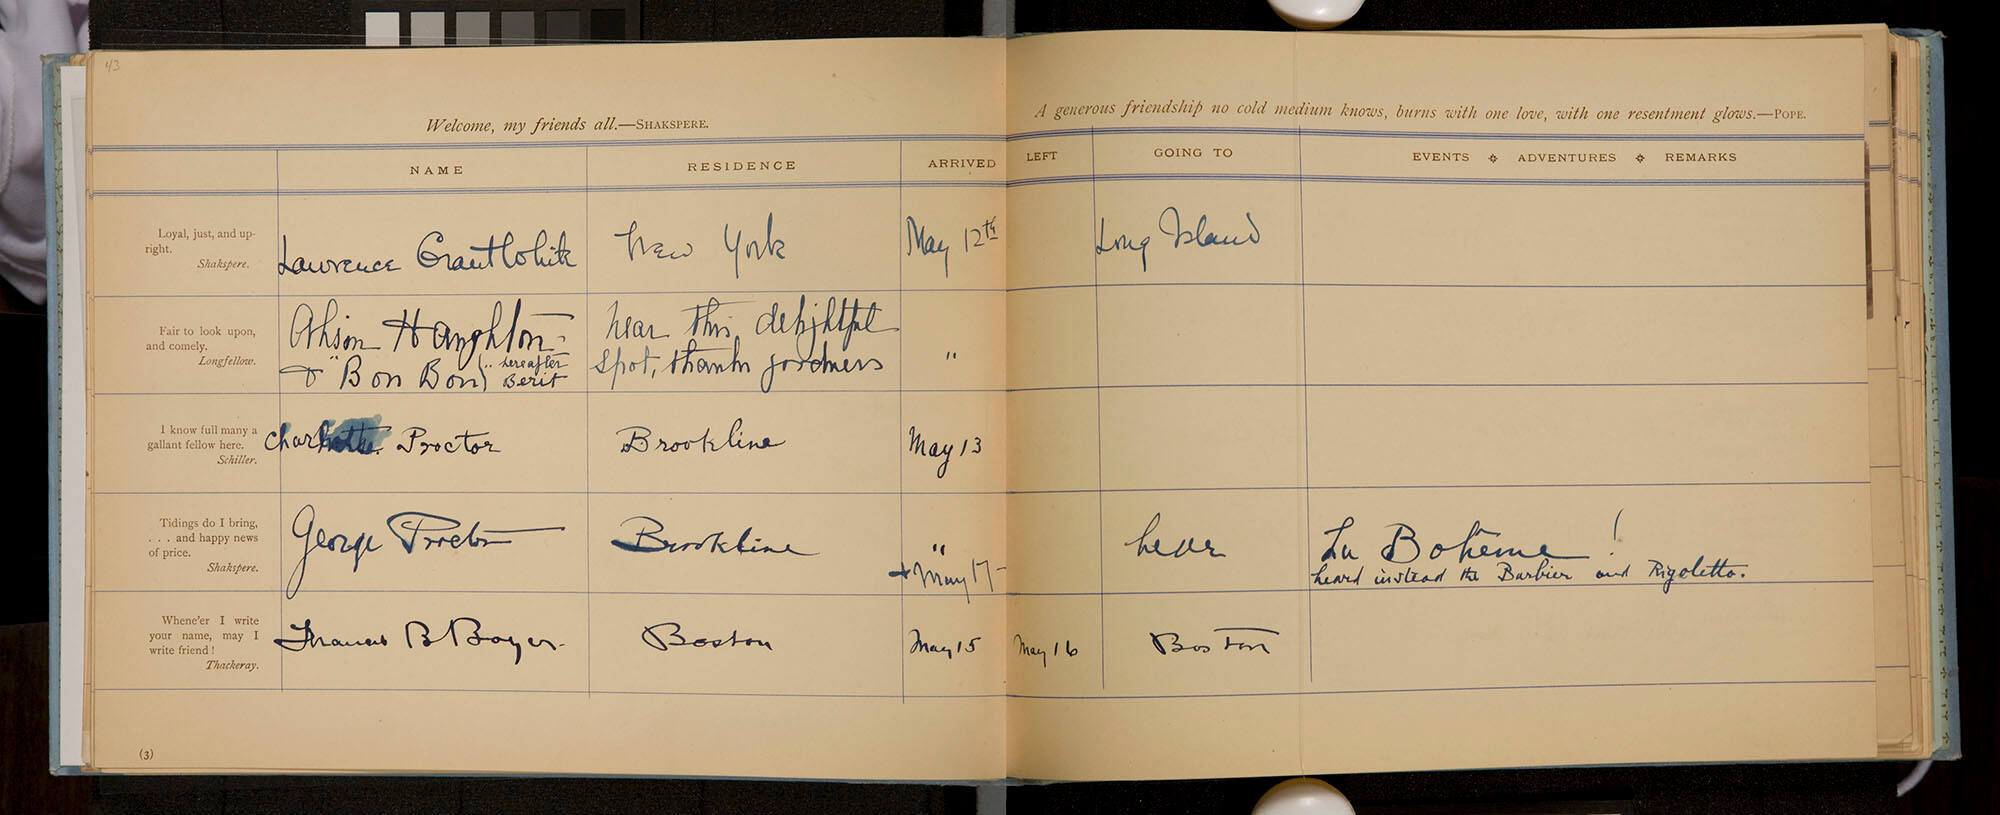 43
Welcome, my friends all.—SHAKSPERE.
A generous friendship no cold medium knows, burns with one love, with one resentment glows.—POPE.
NAME RESIDENCE ARRIVED LEFT GOING TO EVENTS ADVENTURES REMARKS
Loyal, just, and up-
right.
Shakspere.
Lawrence Grant White New York May 12th Long Island
Fair to look upon,
and comely.
Longfellow.
Alison Haughton -
+ "Bon Bon" hereafter
Berit
near this delightful
spot, thank goodness
"
I know full many a
gallant fellow here.
Schiller.
Charlotte Proctor Brookline May 13
Tidings do I bring,
. . . and happy news
of price.
Shakspere.
George Proctor Brookline "
+ May 17-
hear La Bohème!
heard instead the Barbier and Rigoletto.
Whene'er I write
your name, may I
write friend!
Thackeray.
Francis B Boyer. Boston May 15 May 16 Boston
(3)